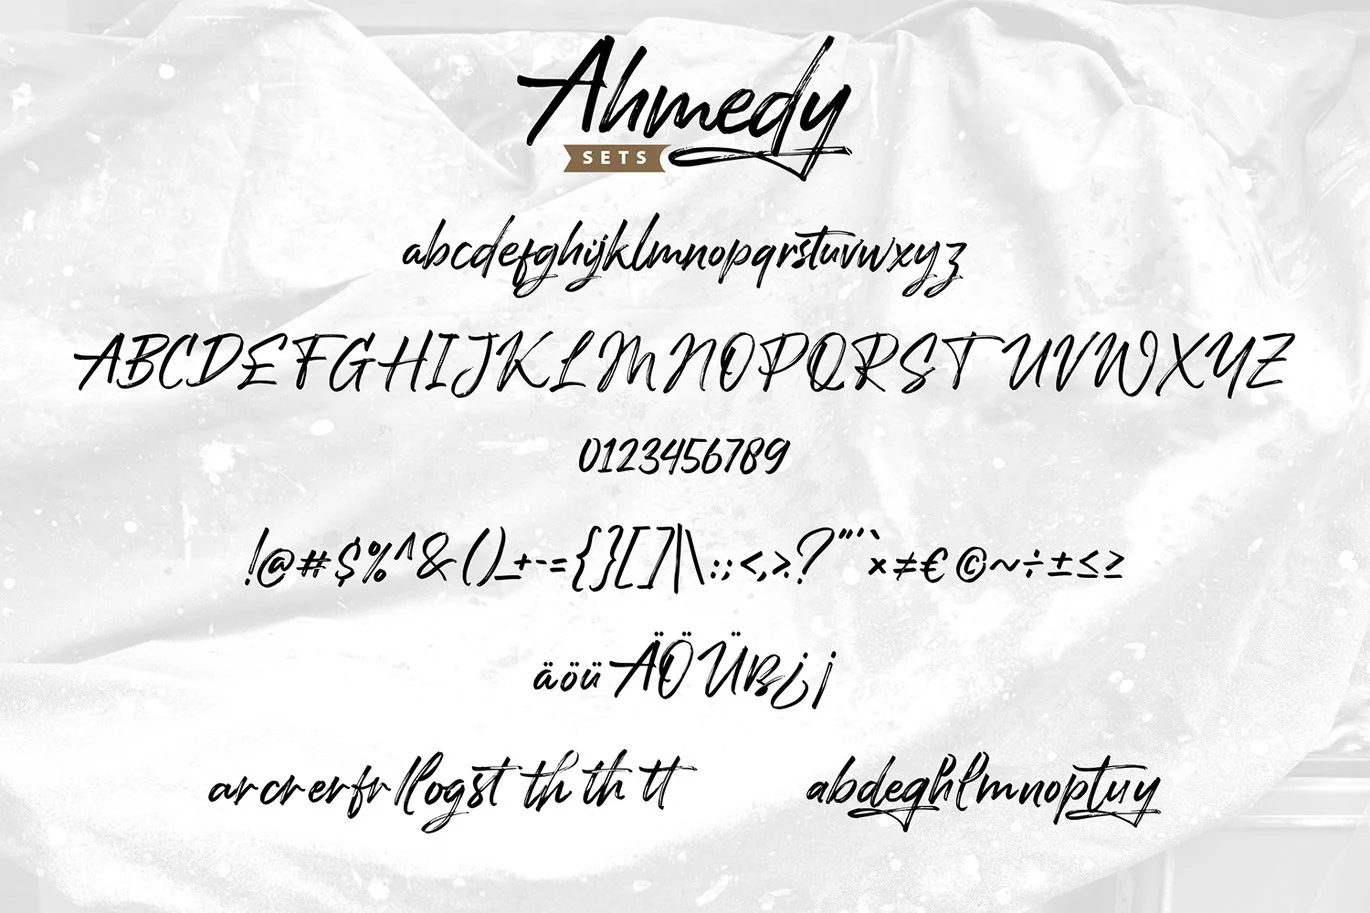 Ahmedy
SETS
abcdefghijklmnopqrstuvwxyz
ABCDEFGHIJKLMNOPQRSTUVWXYZ
0123456789
!@#$%^&()_+-={}[]|\:;<,>.?"'`×≠€©~÷±≤≥
äöüÄÖÜß¿¡
arcrerfrllogst th th tt
abdeghlmnoptuy